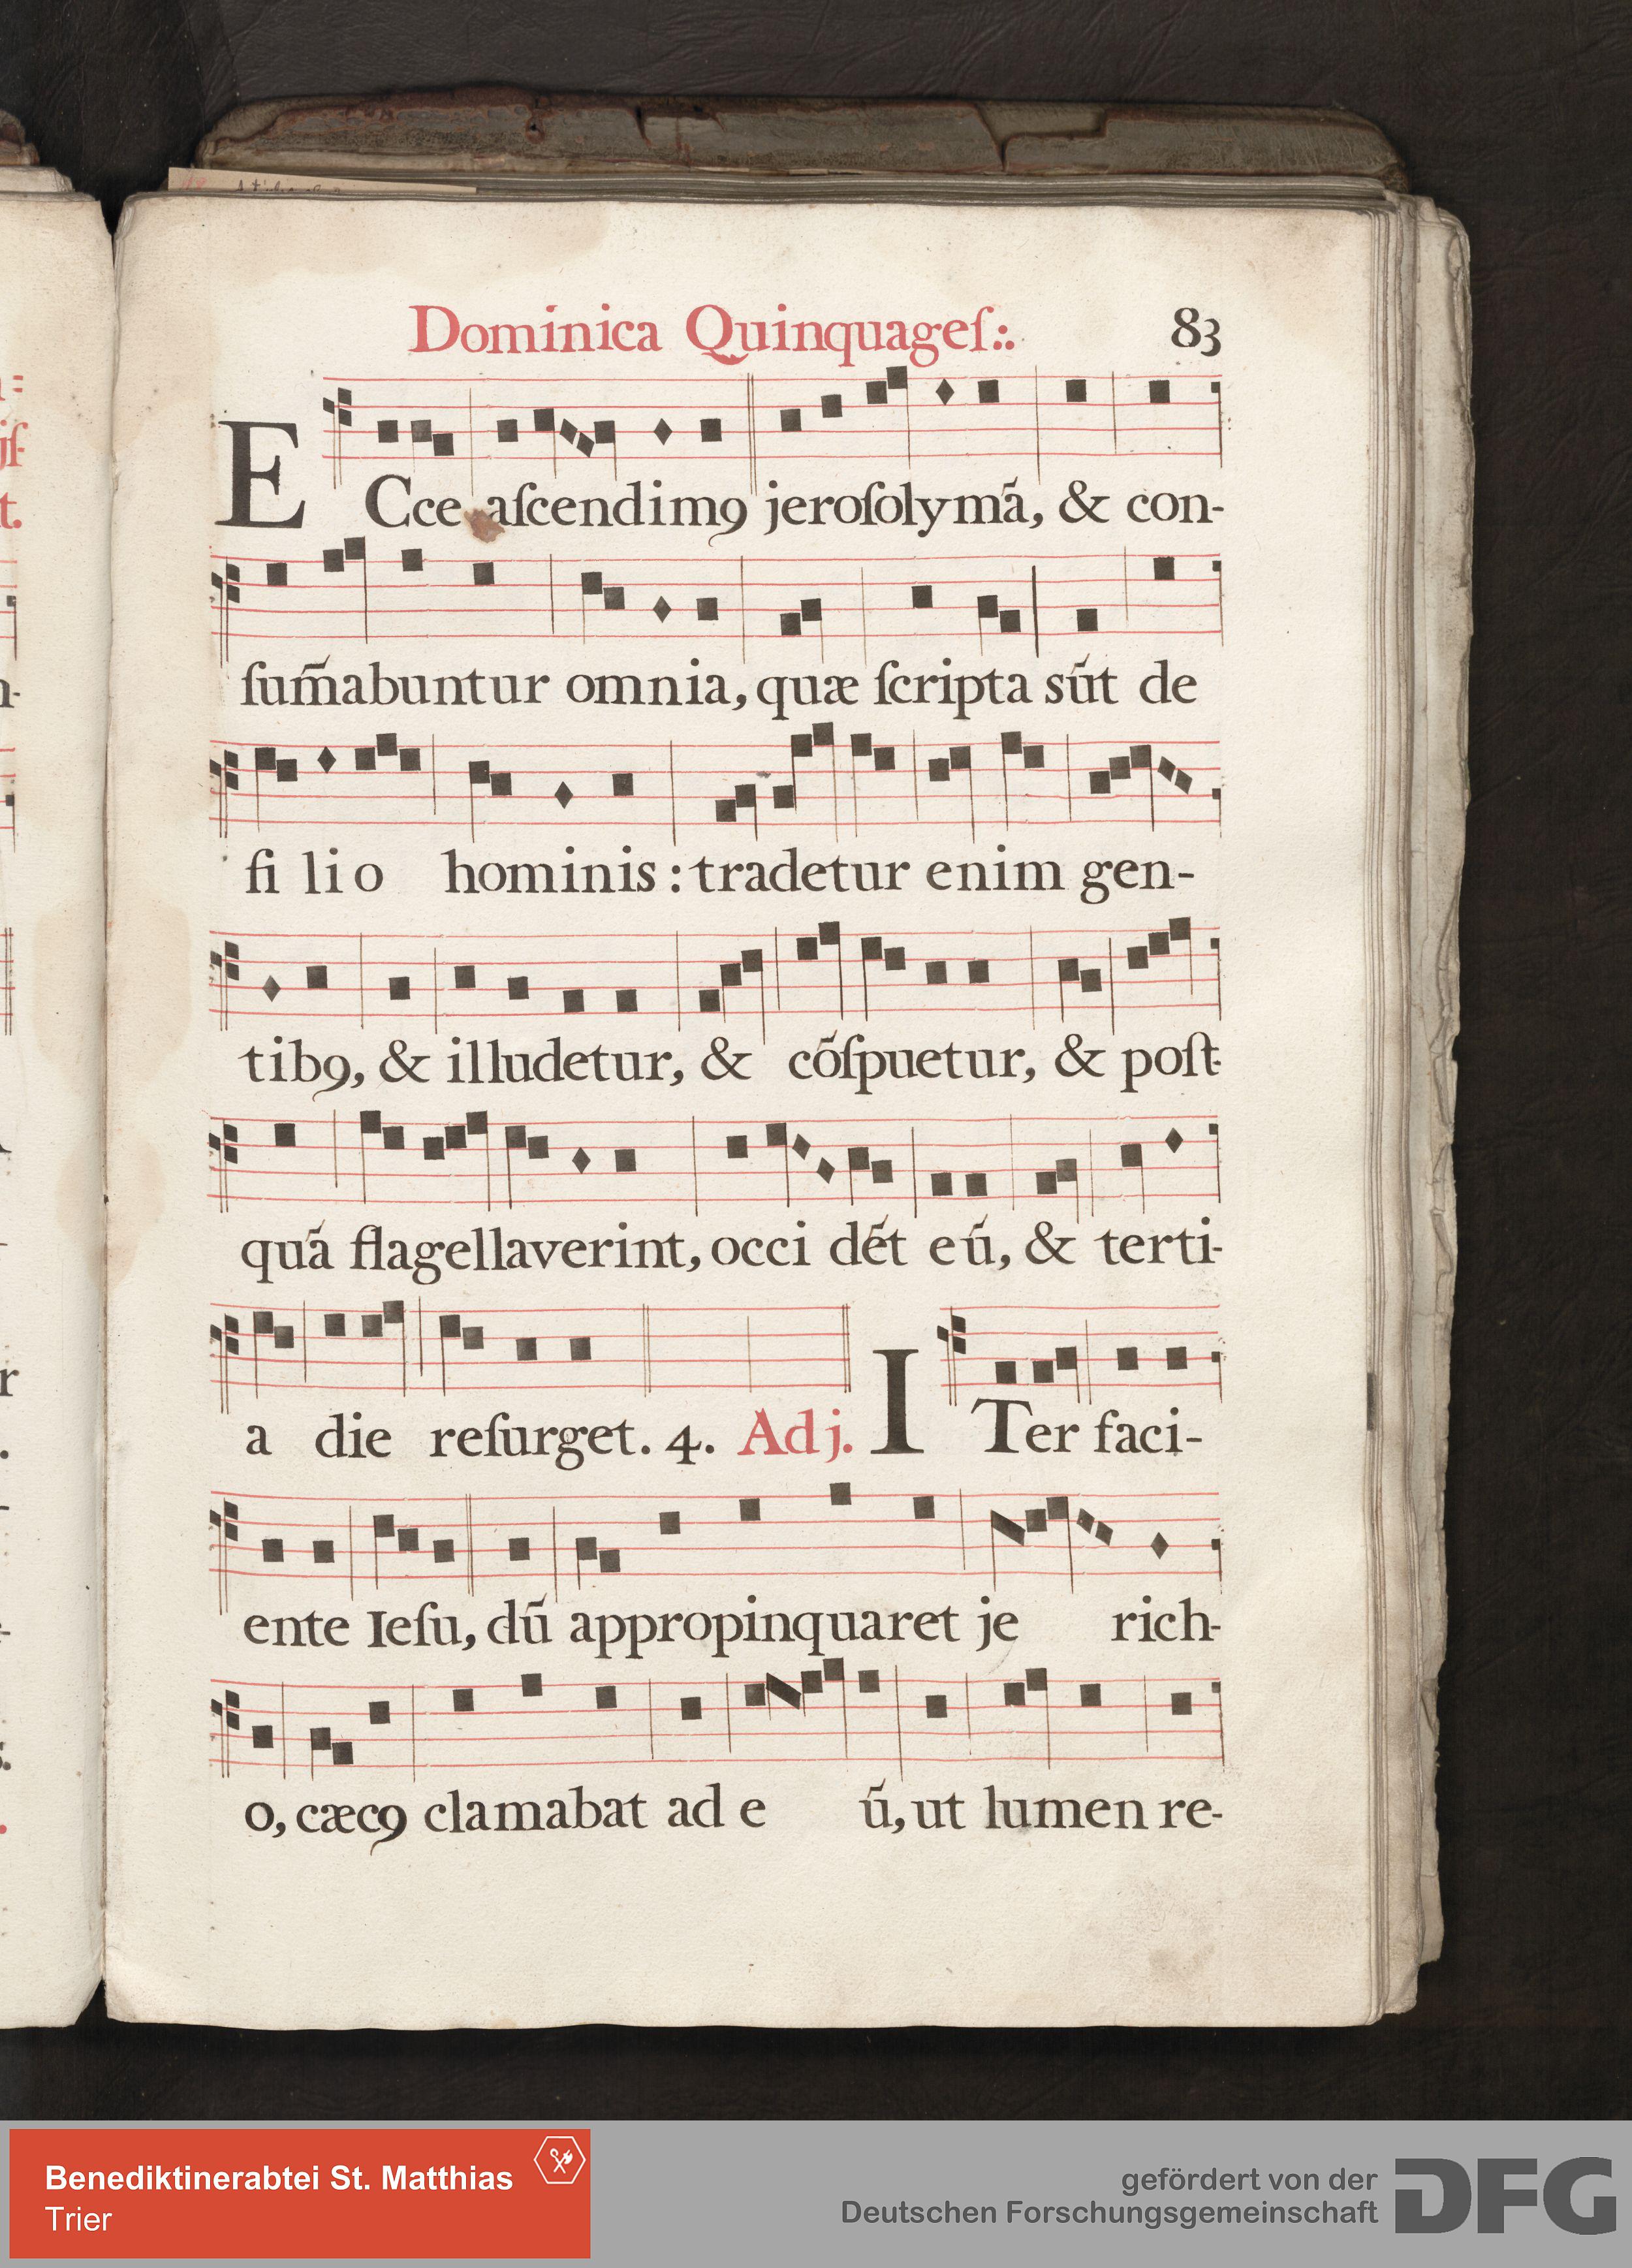 Dominica Quinquageſ:. 83
ECce aſcendimꝯ jeroſolymã, & con-
ſum̃abuntur omnia, quæ ſcripta sũt de
fi li o hominis : tradetur enim gen-
tibꝯ, & illudetur, & cõſpuetur, & poſt-
quã flagellaverint, occi dẽt eũ, & terti-
a die reſurget. 4. Ad j. ITer faci-
ente Ieſu, dũ appropinquaret je rich-
o, cæcꝯ clamabat ad e ũ, ut lumen re-
Benediktinerabtei St. Matthias
Trier
gefördert von der
Deutschen Forschungsgemeinschaft
DFG